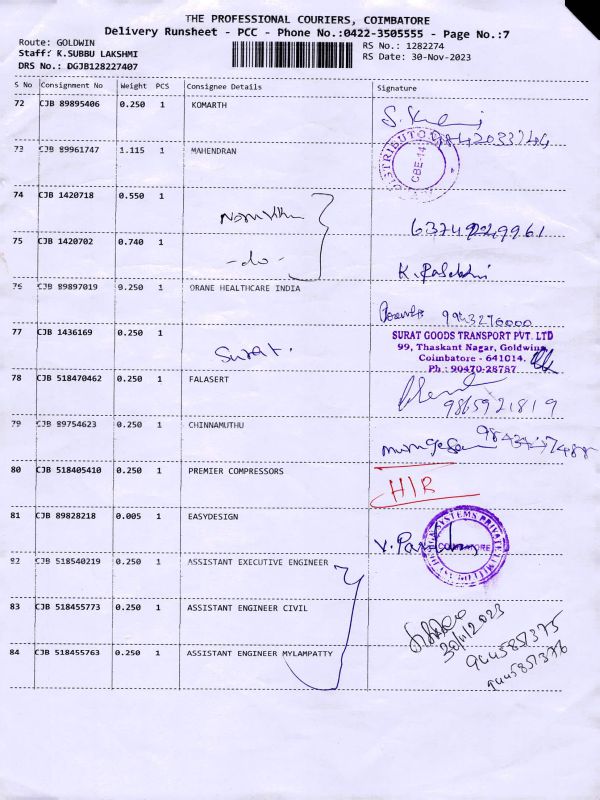 THE PROFESSIONAL COURIERS, COIMBATORE
Delivery Runsheet - PCC - Phone No.:0422-3505555 - Page No.:7
Route: GOLDWIN
Staff: K.SUBBU LAKSHMI
DRS No.: DGJB128227407
RS No.: 1282274
RS Date: 30-Nov-2023
S No Consignment No Weight PCS Consignee Details Signature
72 CJB 89895406 0.250 1 KOMARTH
73 CJB 89961747 1.115 1 MAHENDRAN
DISTRIBUTO
CBE-14
74 CJB 1420718 0.550 1
75 CJB 1420702 0.740 1 -do-
76 CJB 89897019 0.250 1 ORANE HEALTHCARE INDIA
77 CJB 1436169 0.250 1 Surat.
SURAT GOODS TRANSPORT PVT. LTD
99, Thaskant Nagar, Goldwins
Coimbatore - 641014.
Ph : 90470-28787
78 CJB 518470462 0.250 1 FALASERT
9865921819
79 CJB 89754623 0.250 1 CHINNAMUTHU
80 CJB 518405410 0.250 1 PREMIER COMPRESSORS H/R
81 CJB 89828218 0.005 1 EASYDESIGN
SYSTEMS PRIVATE LIMITED
COIMBATORE
82 CJB 518540219 0.250 1 ASSISTANT EXECUTIVE ENGINEER
83 CJB 518455773 0.250 1 ASSISTANT ENGINEER CIVIL
30/11/2023
9445857375
9445857376
84 CJB 518455763 0.250 1 ASSISTANT ENGINEER MYLAMPATTY